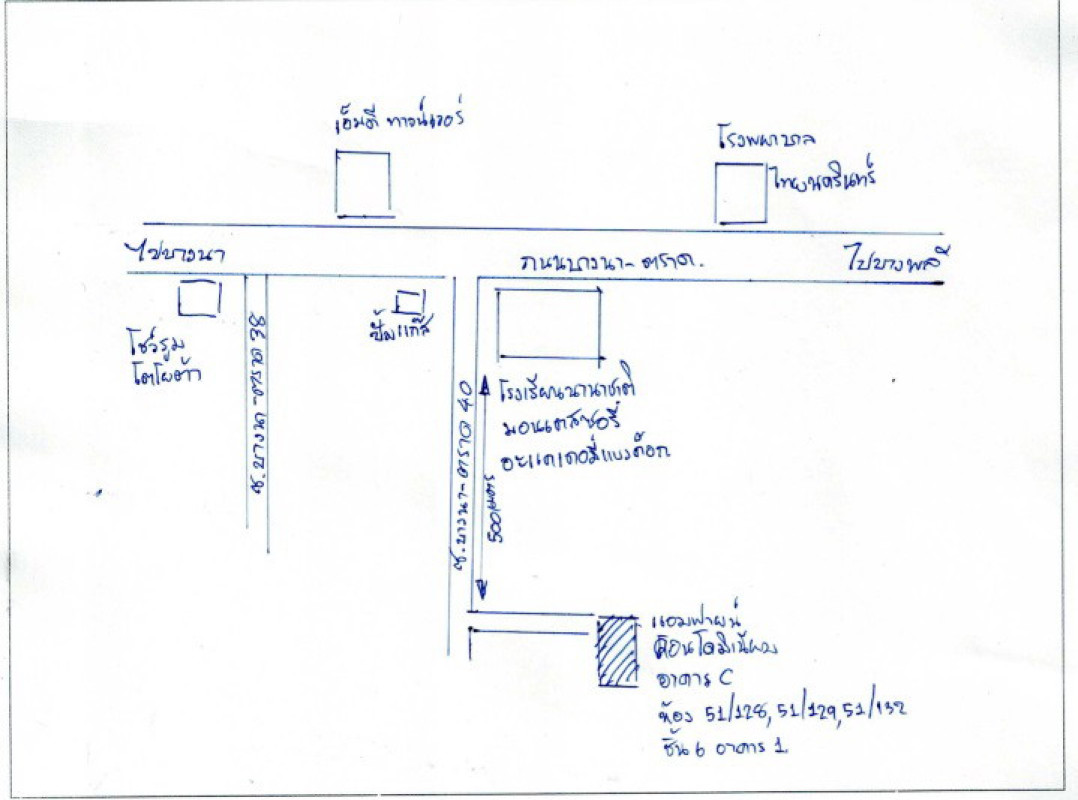 เอ็มดี ทาวน์เวอร์
โรงพยาบาล
ไทยนครินทร์
ไปบางนา
ถนนบางนา-ตราด.
ไปบางพลี
โชว์รูม
โตโยต้า
ปั้มแก๊ส
ซ.บางนา-ตราด 38
ซ.บางนา-ตราด 40
500เมตร
โรงเรียนนานาชาติ
มอนเตสซอรี่
อะแคเดอมี่แบงค็อก
แอมฟายน์
คอนโดมิเนียม
อาคาร C
ห้อง 51/128, 51/129, 51/132
ชั้น 6 อาคาร 1